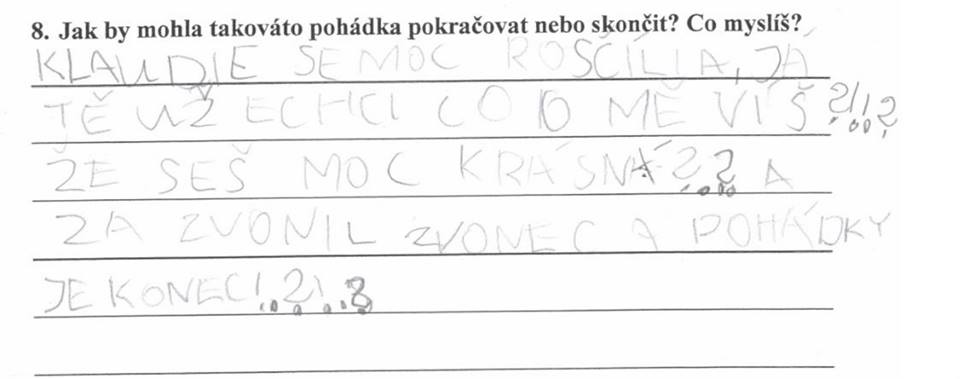 8. Jak by mohla takováto pohádka pokračovat nebo skončit? Co myslíš?
KLAUDIE SE MOC ROSČÍLILA, JÁ
TĚ UŽ ECHCI CO O MĚ VÍŠ?!!?
ŽE SEŠ MOC KRÁSNÁ?? A
ZA ZVONIL ZVONEC A POHÁDKY
JE KONEC!?!?